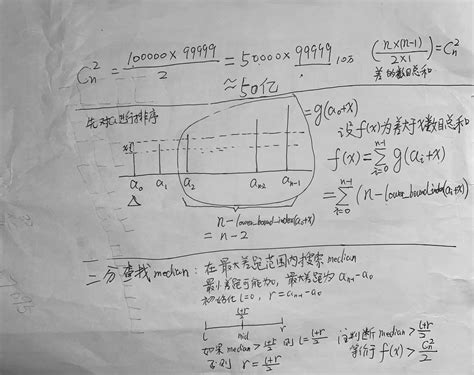 C_n^2 = \frac{100000 × 99999}{2} = 50000 × 99999
≈ 50亿
\left(\frac{n×(n-1)}{2×1}\right) = C_n^2
差的数目总和
先对a进行排序
= g(a_0+x)
a_0 a_1 a_2 a_{n-2} a_{n-1}
△
n - lower_bound_index(a_0+x)
= n-2
设f(x)为差大于x数目总和
f(x) = \sum_{i=0}^{n-1} g(a_i+x)
= \sum_{i=0}^{n-1} (n - lower_bound_index(a_i+x))
二分查找median: 在最大差距范围内搜索median
最小差距可能为0, 最大差距为 a_{n-1}-a_0
初始化 l=0, r=a_{n-1}-a_0
\frac{l+r}{2}
l mid r
如果 median > \frac{l+r}{2} 则 l = \frac{l+r}{2}
否则 r = \frac{l+r}{2}
判断 median > \frac{l+r}{2}
等价于 f(x) > \frac{C_n^2}{2}